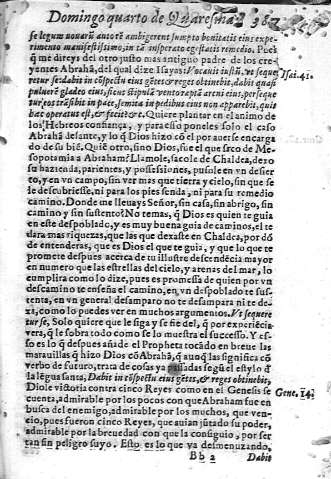 Domingo quarto de Quaresma. 382
se legum nouarũ autorē ambigerent sumpto benitatis eius expe-
rimento manifestissimo, in tā insperato egestatis remedio. Pues
q̃ me direys del otro justo mas antiguo padre de los cre-
yentes Abrahã, del qual dize Isayas: Vocauit iustũ, vt seque
retur se: dabit in cõspectu eius gētes & reges obtinebit, dabit quasi Isai. 41.
puluerē gladeo eius, sicut stipulã vento raptã arcui eius, persequē
tur eos trãsibit in pace, semita in pedibus eius non apparebit, quis
hæc operatus est, & fecit &c. Quiere plantar en el animo de
los Hebreos confiança, y para esto poneles solo el caso
Abrahã delante, y lo q̃ Dios hizo cõ el por auerse encarga
do de su biē. Quiē otro, sino Dios, fue el que saco de Meso-
potamia a Abraham? Llamole, sacole de Chaldea, dexo
su hazienda, parientes, y possessiones, pusole en vn desier
to, y en vn campo, sin ver mas que tierra y cielo, sin que se
le descubriesse, ni para los pies senda, ni para su remedio
camino. Donde me lleuays Señor, sin casa, sin abrigo, sin
camino y sin sustento? No temas, q̃ Dios es quien te guia
en este despoblado, y es muy buena guia de caminos, el te
dara mas riquezas, que las que dexaste en Chaldea, por dõ
de entenderas, que es Dios el que te guia, y que lo que te
promete despues acerca de tu illustre descendēcia mayor
en numero que las estrellas del cielo, y arenas del mar, lo
cumplira como lo dize, pues es promessa de quien por vn
descamino te enseña el camino, en vn despoblado te sus-
tenta, en vn general desamparo no te desampara ni te de-
xa, como lo puedes ver en muchos argumentos. Vt sequere
tur se, Solo quiere que le siga y se fie del, q̃ por experiēcia
vera, q̃ le sobra todo como se lo muestra el successo. Y es-
so es lo q̃ despues añade el Propheta tocãdo en breue las
marauillas q̃ hizo Dios cõ Abrahã, q̃ aunq̃ las significa cõ
verbo de futuro, trata de cosas ya passadas segũ el estylo d̃
la lēgua santa, Dabit in cõspectu eius gētes, & reges obtinebit,
Diole victoria contra cinco Reyes como en el Genesis se Gene. 14.
cuenta, admirable por los pocos con que Abraham fue en
busca del enemigo, admirable por los muchos, que ven-
cio, pues fueron cinco Reyes, que auian jũtado su poder,
admirable por la breuedad con que la consiguio, por ser
tan sin peligro suyo. Esto es lo que va desmenuzando,
Bb 2 Dabit